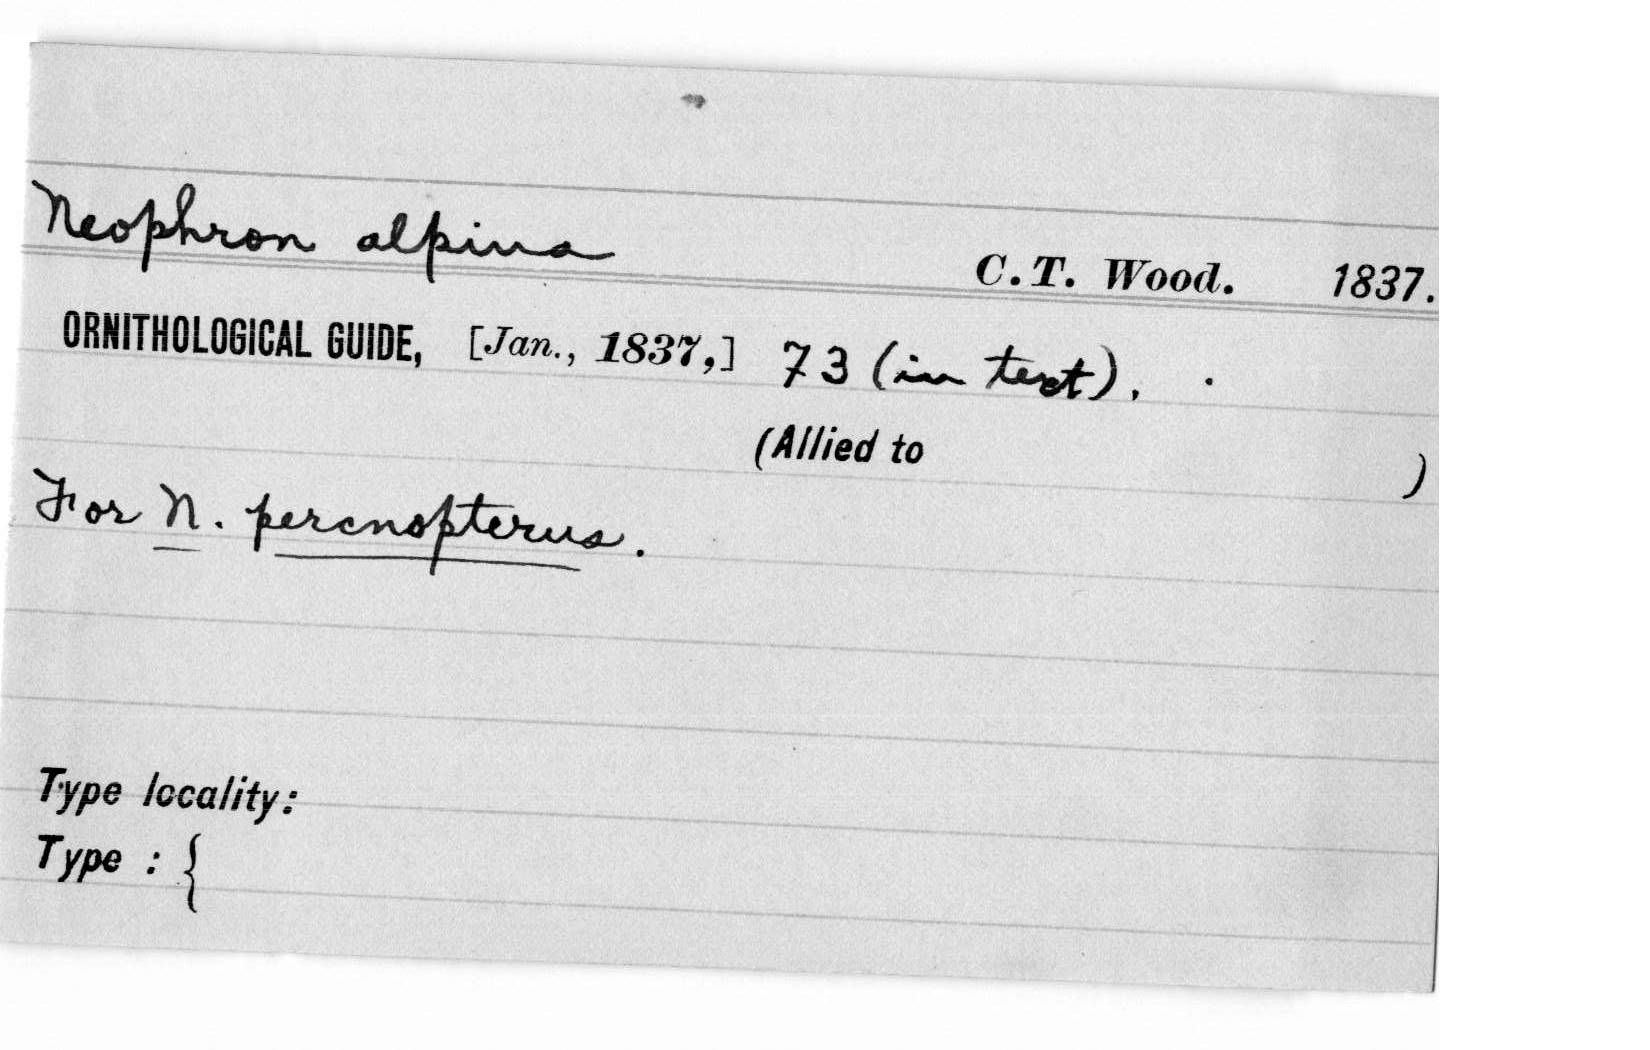 Neophron alpina C.T. Wood. 1837.
ORNITHOLOGICAL GUIDE, [Jan., 1837,] 73 (in text).
(Allied to )
For N. percnopterus.
Type locality:
Type : {